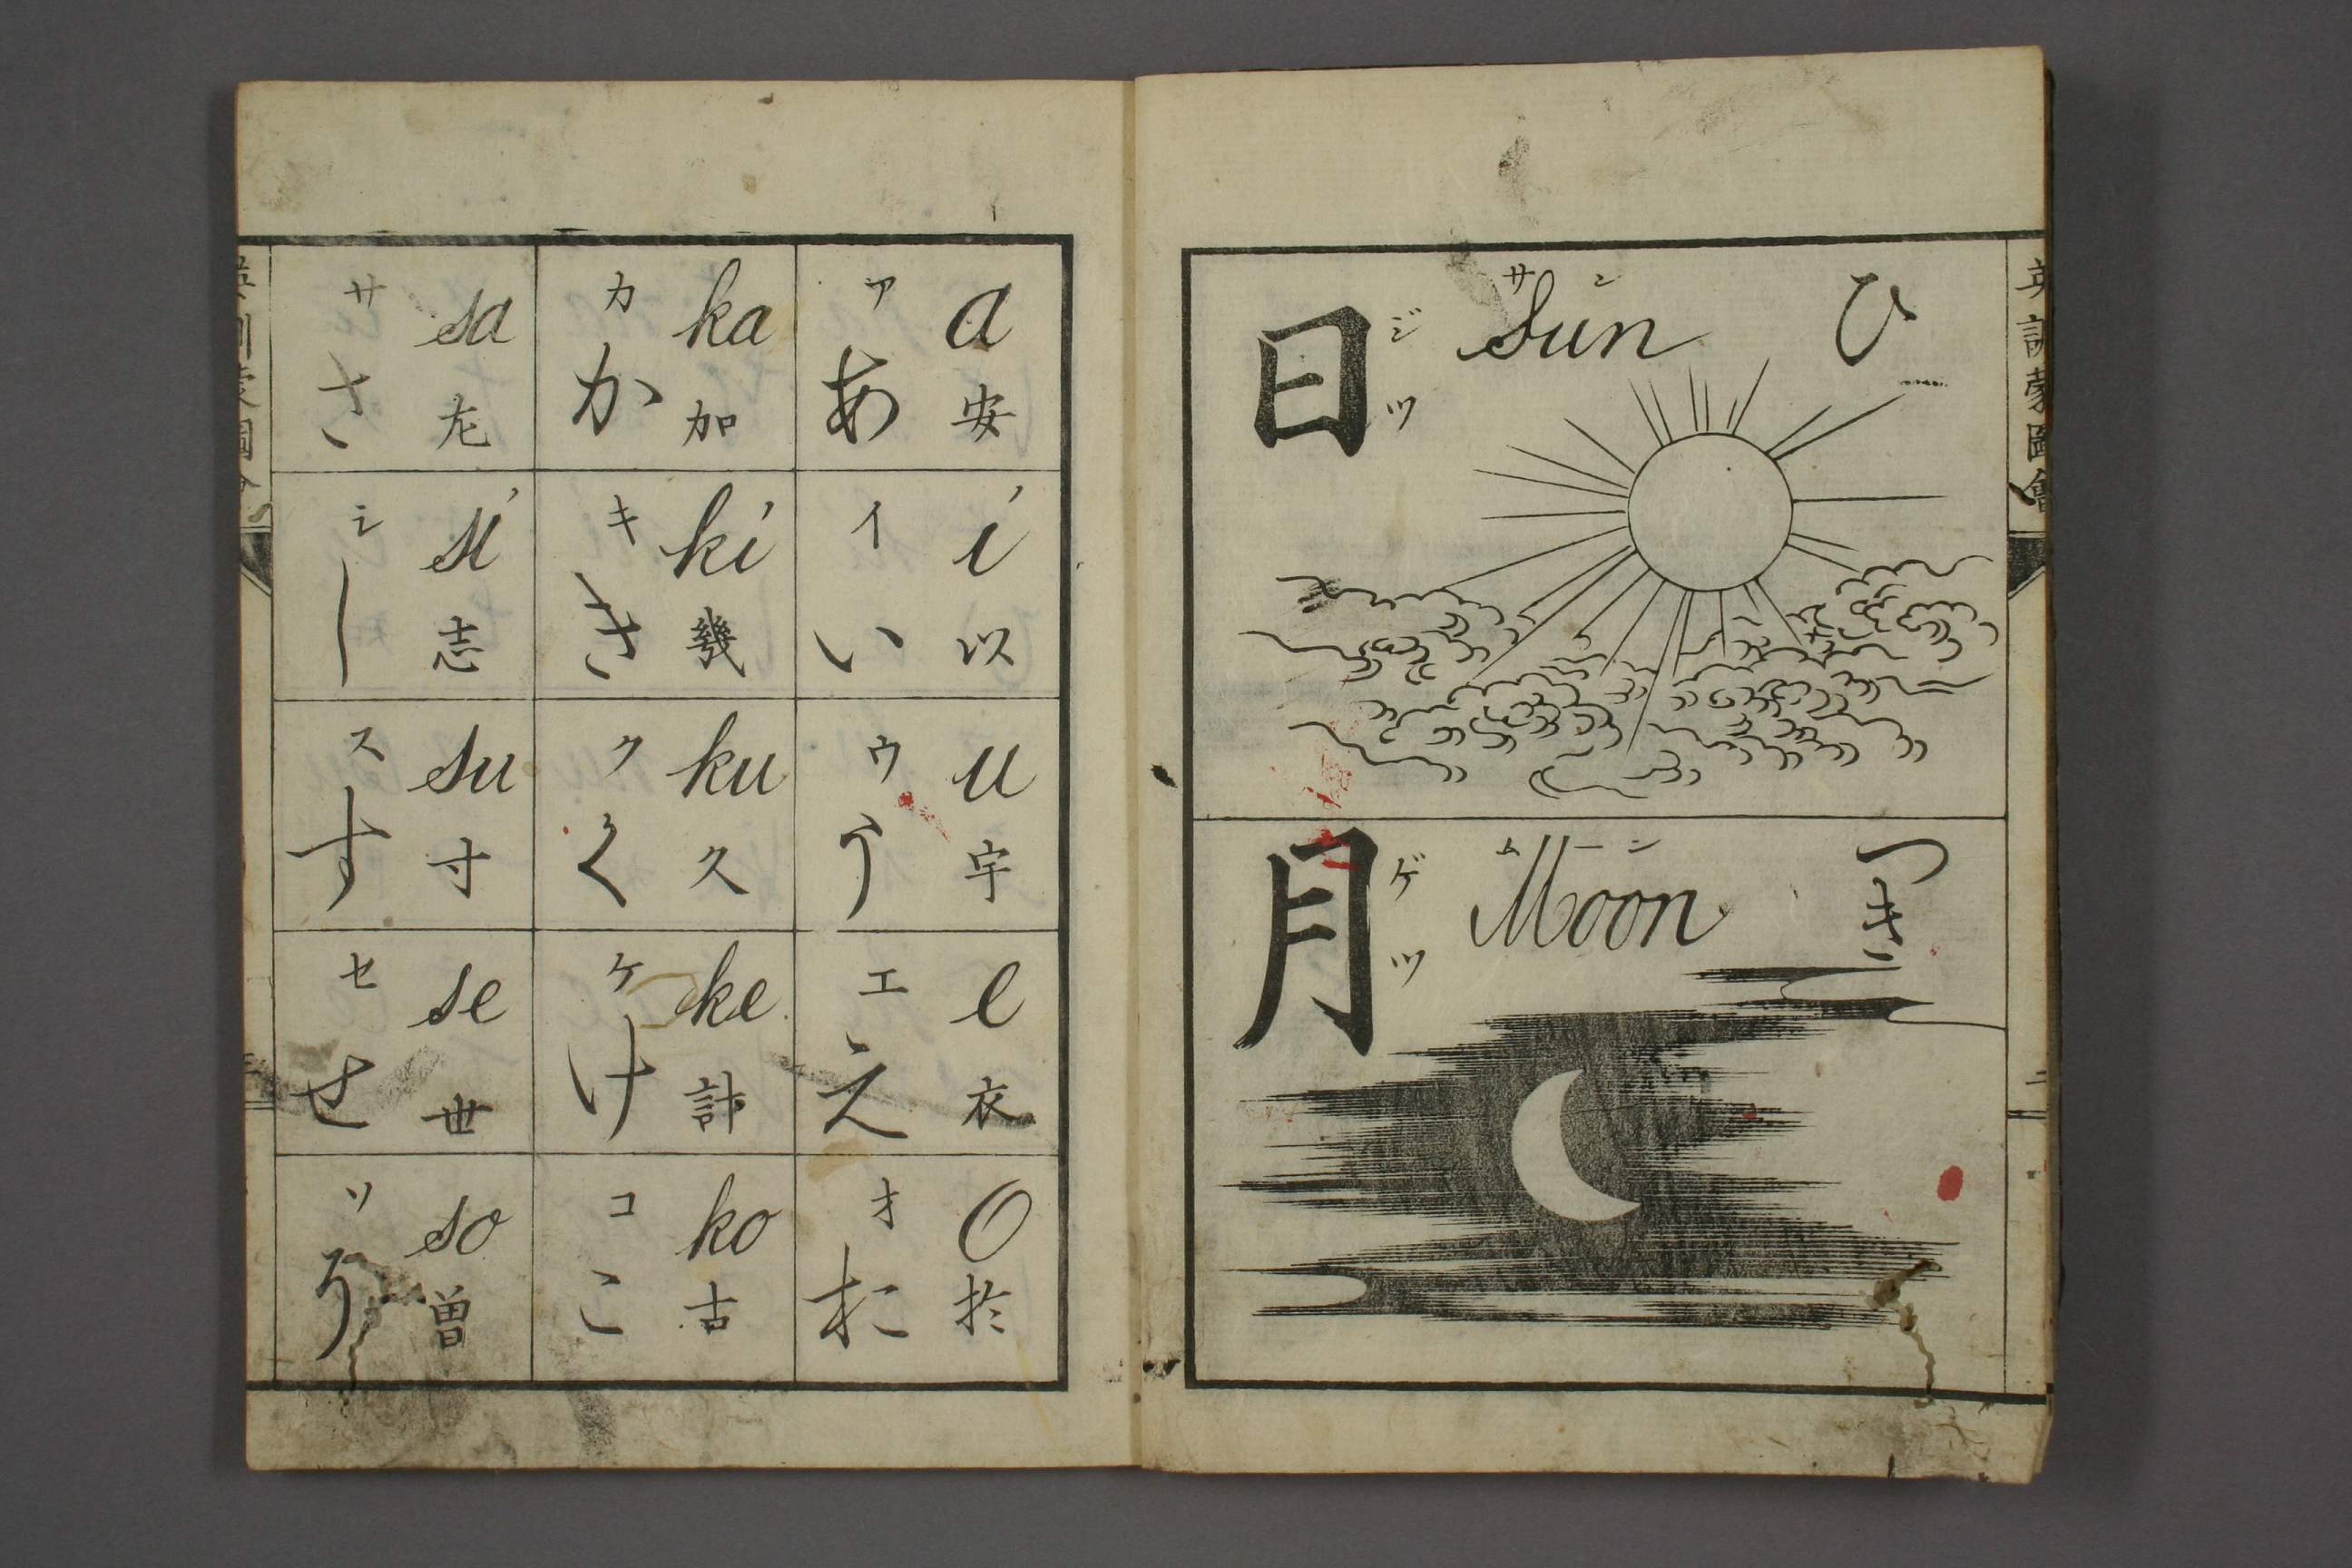 英訓蒙圖會
二
ひ
サン
Sun
ジツ
日
つき
ムーン
Moon
ゲツ
月
a
安
ア
あ
i
以
イ
い
u
宇
ウ
う
e
衣
エ
え
o
於
オ
お
ka
加
カ
か
ki
幾
キ
き
ku
久
ク
く
ke
計
ケ
け
ko
古
コ
こ
sa
左
サ
さ
si
志
シ
し
su
寸
ス
す
se
世
セ
せ
so
曽
ソ
そ